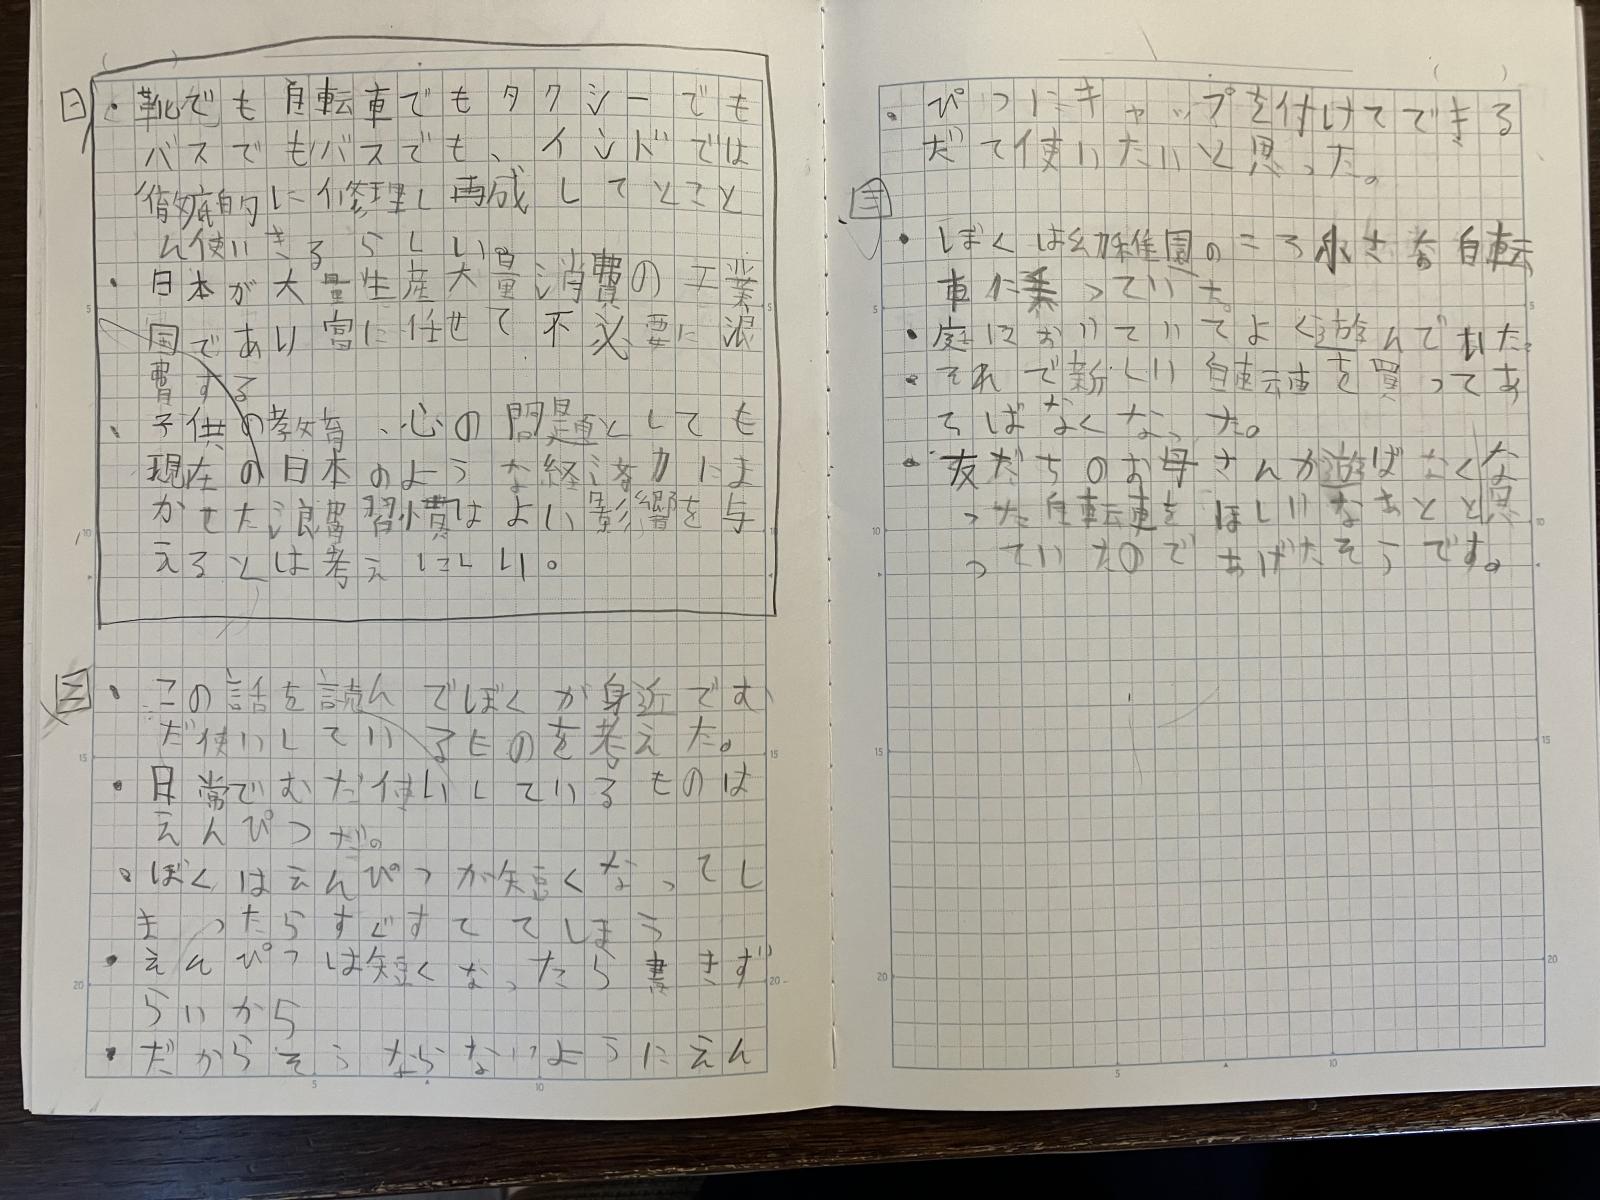 一
・靴でも自転車でもタクシーでも
バスでもバスでも、インドでは
徹底的に修理し再成してとこと
ん使いきるらしい。
・日本が大量生産大量消費の工業
国であり富に任せて不必要に浪
費する
・子供の教育、心の問題としても
現在の日本のような経済力にま
かせた浪費習慣はよい影響を与
えるとは考えにしい。
二
・この話を読んでぼくが身近でむ
だ使いしているものを考えた。
・日常でむだ使いしているものは
えんぴつだ。
・ぼくはえんぴつが短くなってし
まったらすぐすててしまう
・えんぴつは短くなったら書きず
らいから
・だからそうならないようにえん
・ぴつにキャップを付けてできる
だて使いたいと思った。
三
・ぼくは幼稚園のころ小さな自転
車に乗っていた。
・庭においていてよく遊んでいた。
・それで新しい自転車を買ってあ
そばなくなった。
・友だちのお母さんが遊ばなくな
った自転車をほしいなぁと思
っていたのであげたそうです。